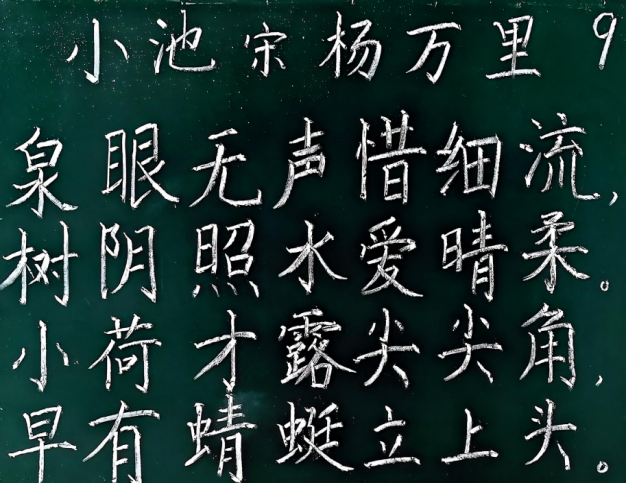 小池 宋 杨万里 9
泉眼无声惜细流,
树阴照水爱晴柔。
小荷才露尖尖角,
早有蜻蜓立上头。